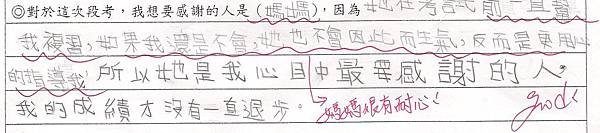 ◎對於這次段考，我想要感謝的人是（媽媽），因為她在考試前一直幫
我複習，如果我還是不會，她也不會因此而生氣，反而是更用心
的指導我，所以她是我心目中最要感謝的人，
我的成績才沒有一直退步。媽媽很有耐心!
good!